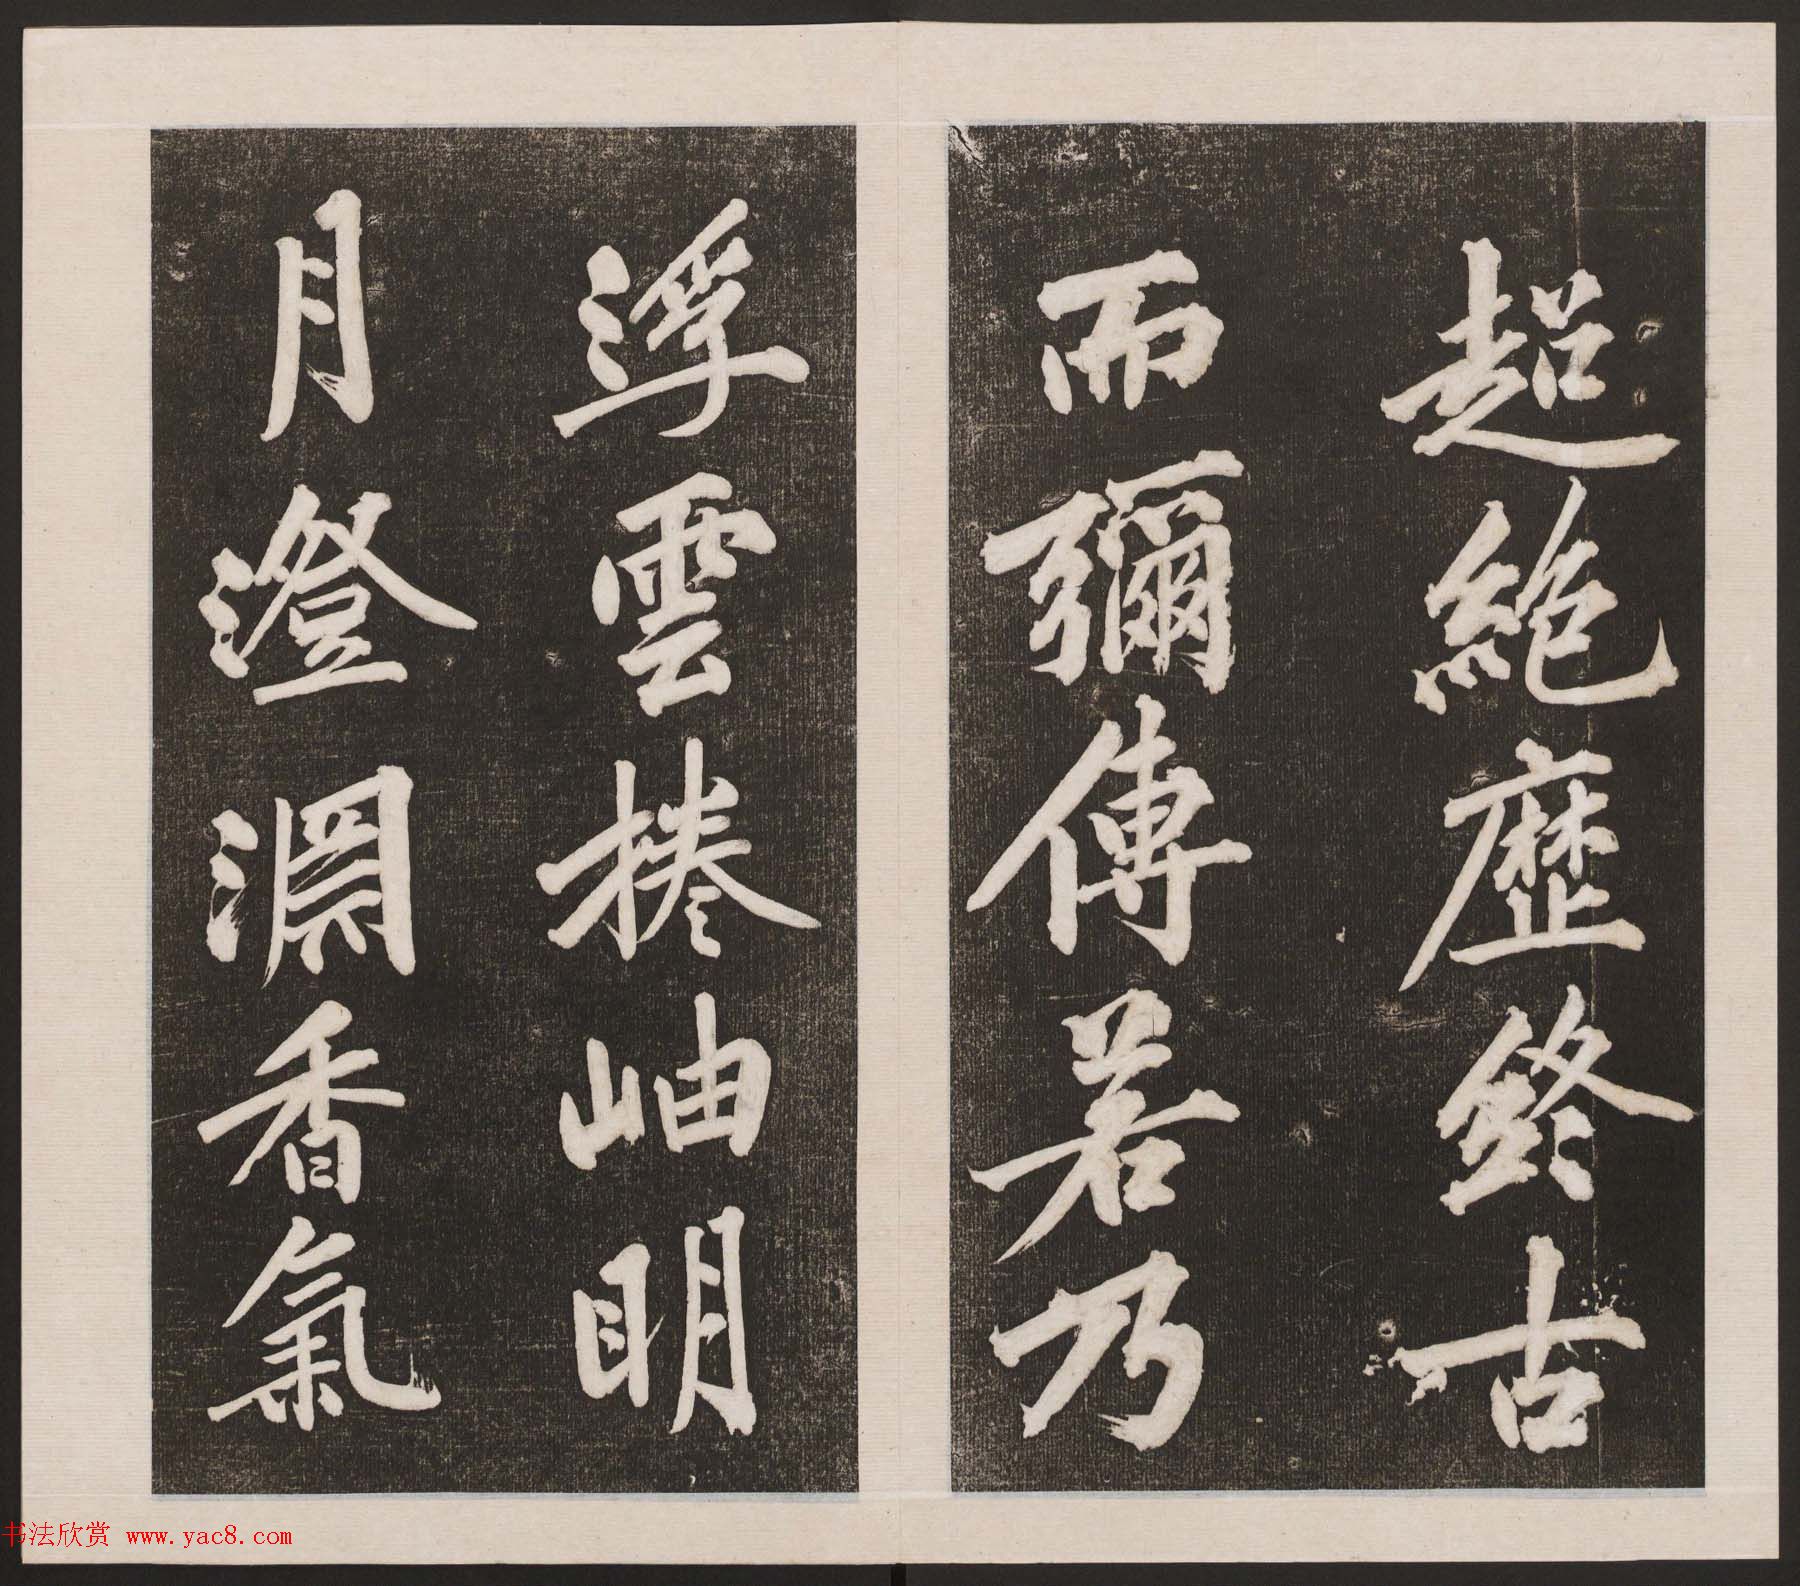 超絕歷終古
而彌傳若乃
浮雲捲岫明
月澄淵香氣
书法欣赏 www.yac8.com